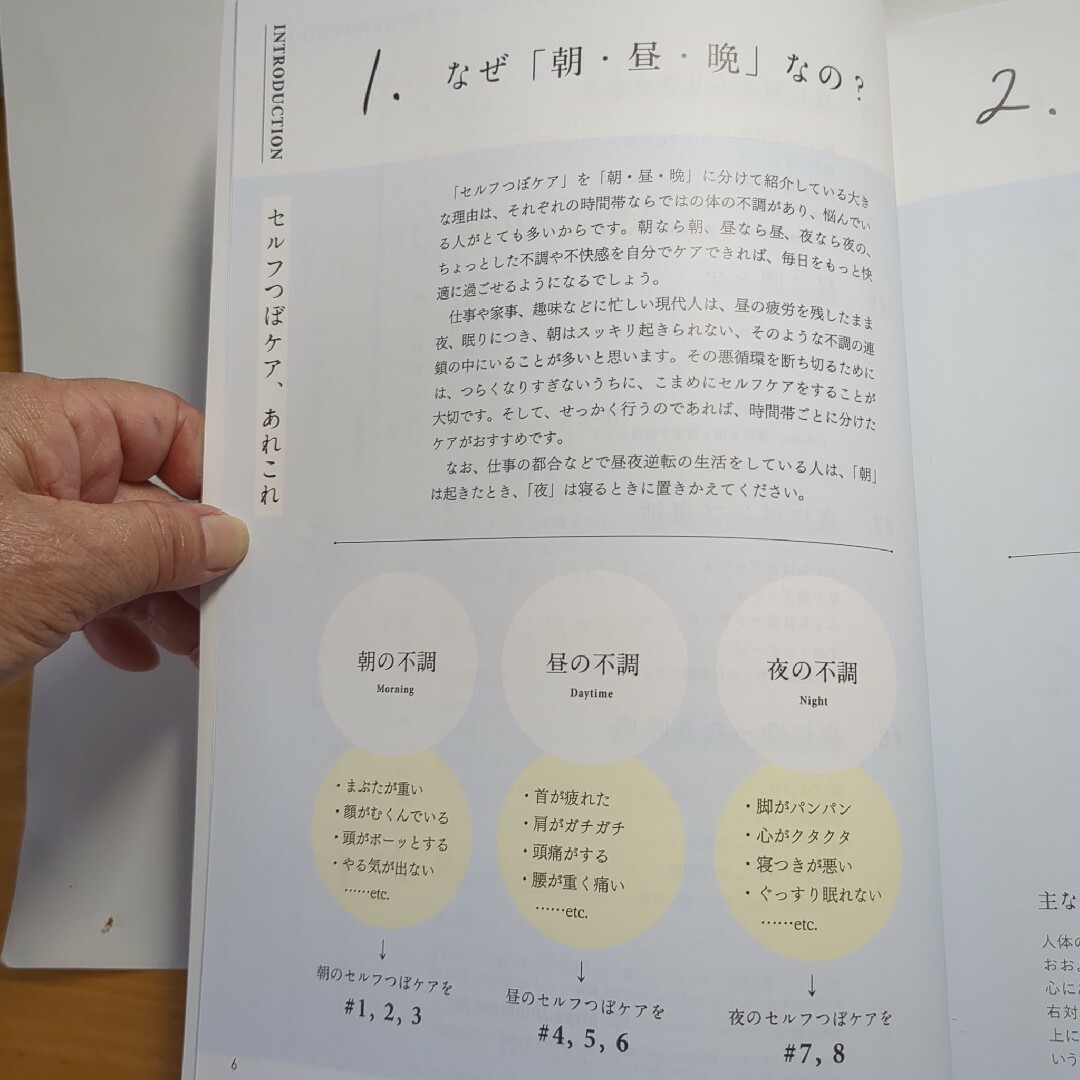 INTRODUCTION
セルフつぼケア、あれこれ
1. なぜ「朝・昼・晩」なの?
「セルフつぼケア」を「朝・昼・晩」に分けて紹介している大き
な理由は、それぞれの時間帯ならではの体の不調があり、悩んでい
る人がとても多いからです。朝なら朝、昼なら昼、夜なら夜の、
ちょっとした不調や不快感を自分でケアできれば、毎日をもっと快
適に過ごせるようになるでしょう。
仕事や家事、趣味などに忙しい現代人は、昼の疲労を残したまま
夜、眠りにつき、朝はスッキリ起きられない、そのような不調の連
鎖の中にいることが多いと思います。その悪循環を断ち切るために
は、つらくなりすぎないうちに、こまめにセルフケアをすることが
大切です。そして、せっかく行うのであれば、時間帯ごとに分けた
ケアがおすすめです。
なお、仕事の都合などで昼夜逆転の生活をしている人は、「朝」
は起きたとき、「夜」は寝るときに置きかえてください。
朝の不調
Morning
・まぶたが重い
・顔がむくんでいる
・頭がボーッとする
・やる気が出ない
……etc.
↓
朝のセルフつぼケアを
#1, 2, 3
昼の不調
Daytime
・首が疲れた
・肩がガチガチ
・頭痛がする
・腰が重く痛い
……etc.
↓
昼のセルフつぼケアを
#4, 5, 6
夜の不調
Night
・脚がパンパン
・心がクタクタ
・寝つきが悪い
・ぐっすり眠れない
……etc.
↓
夜のセルフつぼケアを
#7, 8
6
2.
主な
人体の
おお
心に
右対
上に
いう